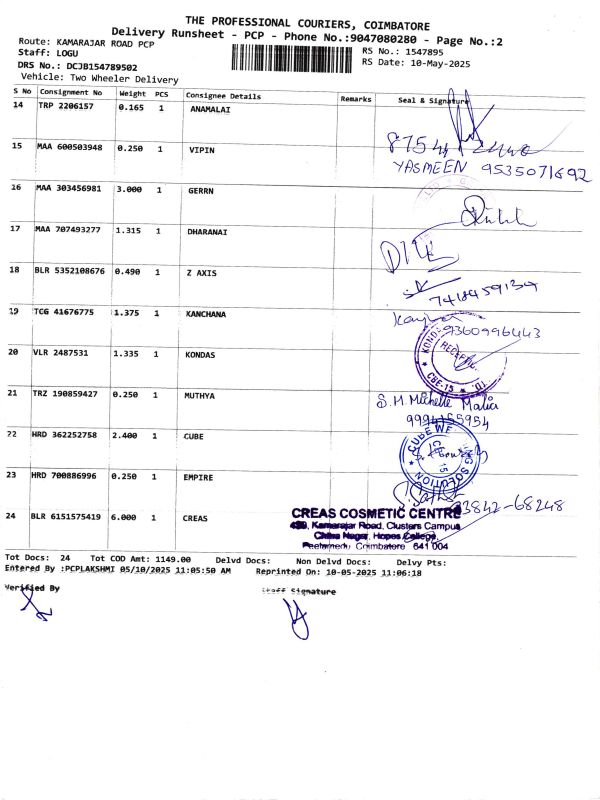 THE PROFESSIONAL COURIERS, COIMBATORE
Delivery Runsheet - PCP - Phone No.:9047080280 - Page No.:2
Route: KAMARAJAR ROAD PCP
Staff: LOGU
DRS No.: DCJB154789502
Vehicle: Two Wheeler Delivery
RS No.: 1547895
RS Date: 10-May-2025
S No Consignment No Weight PCS Consignee Details Remarks Seal & Signature
14 TRP 2206157 0.165 1 ANAMALAI
15 MAA 600503948 0.250 1 VIPIN
YASMEEN 9535071692
16 MAA 303456981 3.000 1 GERRN
17 MAA 707493277 1.315 1 DHARANAI
18 BLR 5352108676 0.490 1 Z AXIS
7418459139
19 TCG 41676775 1.375 1 KANCHANA
9360996443
20 VLR 2487531 1.335 1 KONDAS
RECEPTIO
CBE-15
21 TRZ 190859427 0.250 1 MUTHYA
S.M. Michelle Malici
22 HRD 362252758 2.400 1 CUBE
CUBE WE
SOLUTION
23 HRD 700886996 0.250 1 EMPIRE
93842-68248
24 BLR 6151575419 6.000 1 CREAS
CREAS COSMETIC CENTRE
Kamarajar Road, Clusters Campus
Nagar, Hopes College,
Peelamedu, Coimbatore 641 004
Tot Docs: 24 Tot COD Amt: 1149.00 Delvd Docs: Non Delvd Docs: Delvy Pts:
Entered By :PCPLAKSHMI 05/10/2025 11:05:50 AM Reprinted On: 10-05-2025 11:06:18
Verified By
Staff Signature